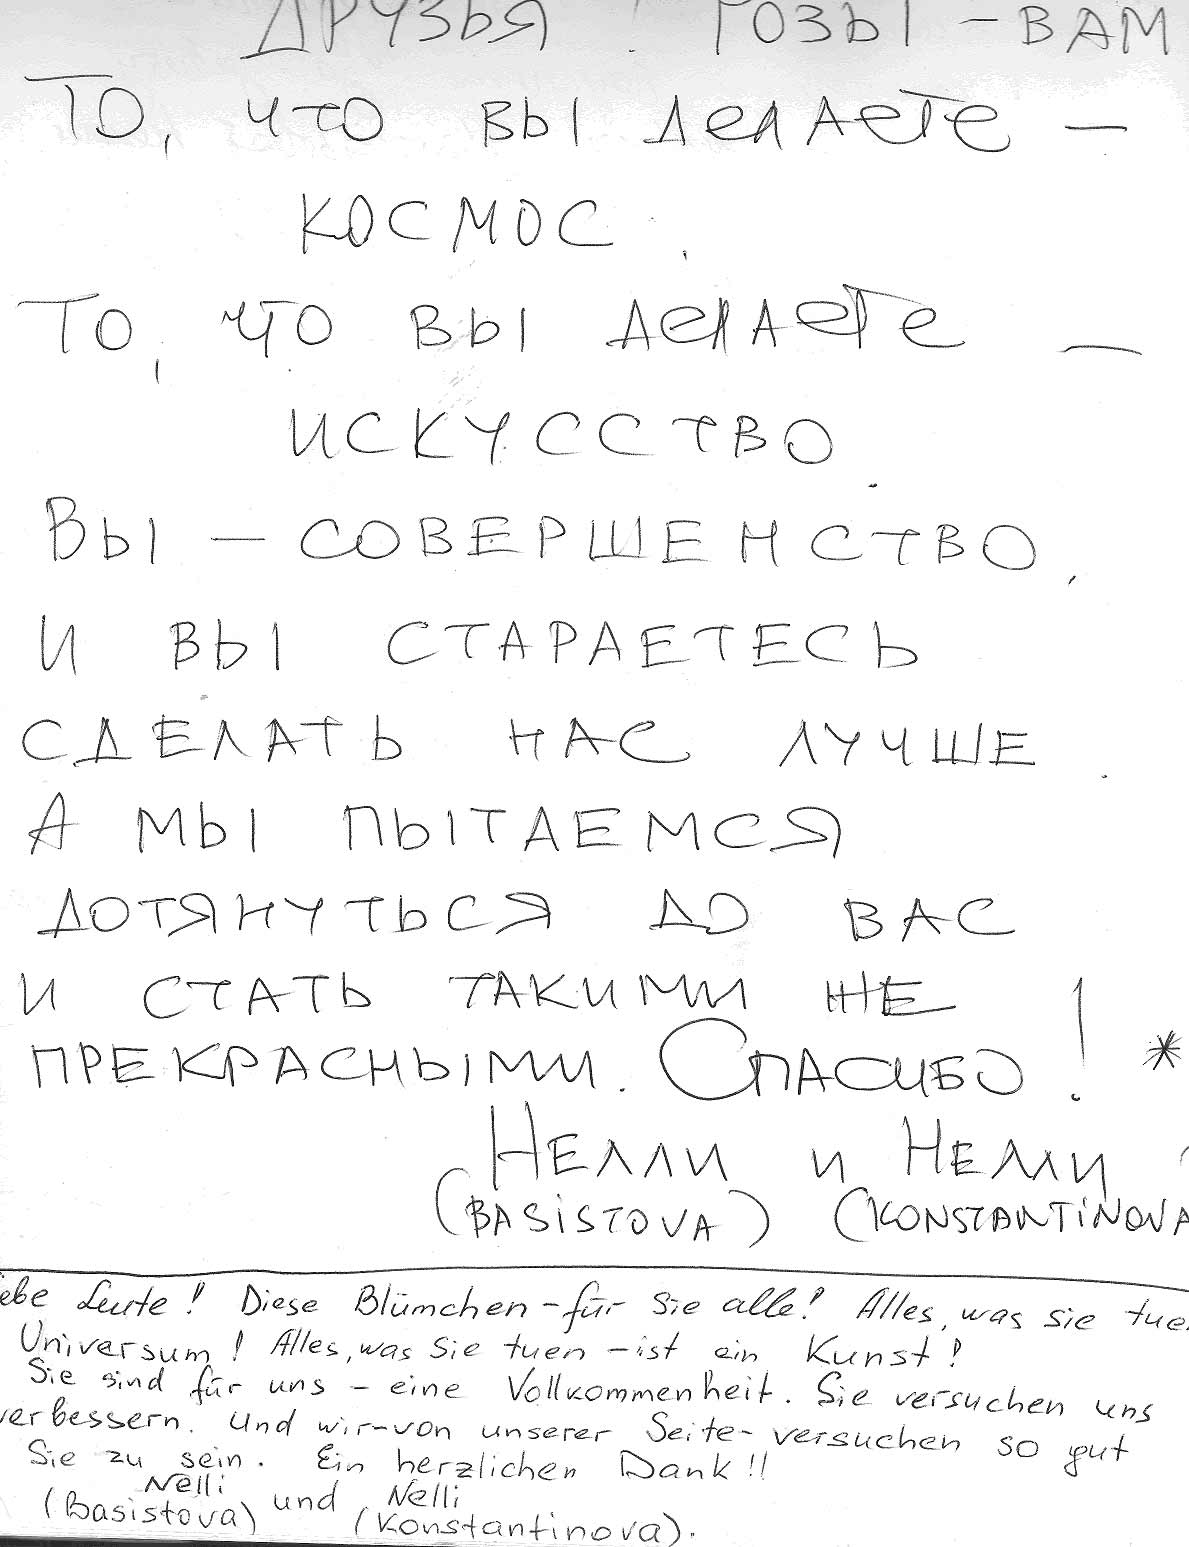 ДРУЗЬЯ! РОЗЫ – ВАМ
ТО, ЧТО ВЫ ДЕЛАЕТЕ –
КОСМОС.
ТО, ЧТО ВЫ ДЕЛАЕТЕ –
ИСКУССТВО.
ВЫ – СОВЕРШЕНСТВО,
И ВЫ СТАРАЕТЕСЬ
СДЕЛАТЬ НАС ЛУЧШЕ.
А МЫ ПЫТАЕМСЯ
ДОТЯНУТЬСЯ ДО ВАС
И СТАТЬ ТАКИМИ ЖЕ
ПРЕКРАСНЫМИ. СПАСИБО! *
НЕЛЛИ и НЕЛЛИ
(BASISTOVA) (KONSTANTINOVA
ebe Leute! Diese Blümchen – für Sie alle! Alles, was sie tue
Universum! Alles, was Sie tuen – ist ein Kunst!
Sie sind für uns – eine Vollkommenheit. Sie versuchen uns
verbessern. Und wir – von unserer Seite – versuchen so gut
Sie zu sein. Ein herzlichen Dank!!
Nelli und Nelli
(Basistova) (Konstantinova).